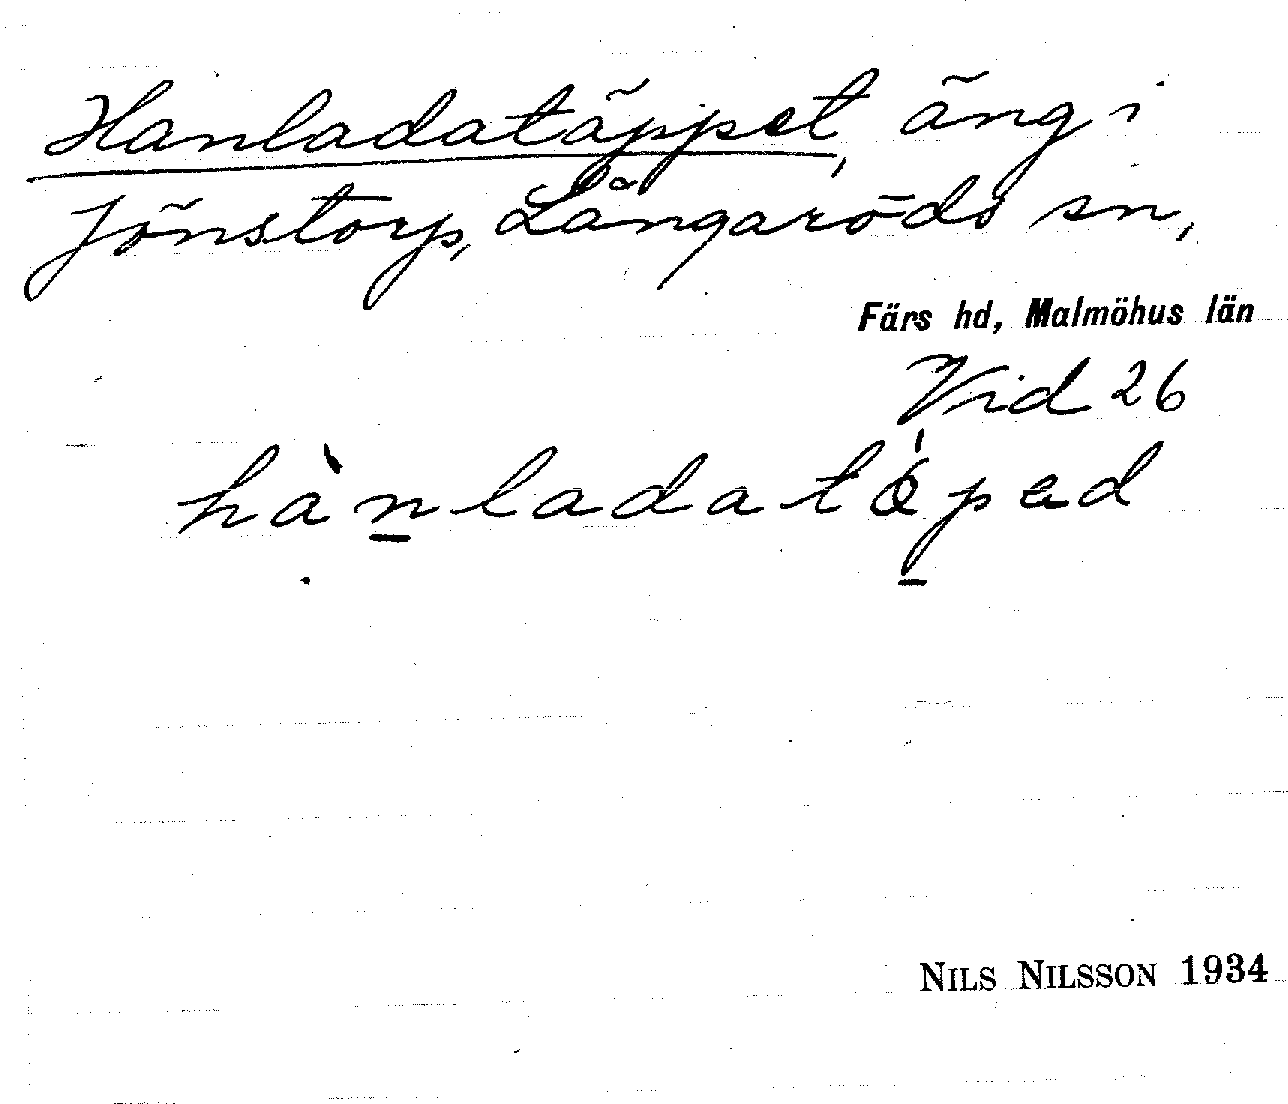 Hanladatäppet, äng i
Jönstorp, Långaröds sn,
Färs hd, Malmöhus län
Vid 26
hànladatǿpəd
NILS NILSSON 1934